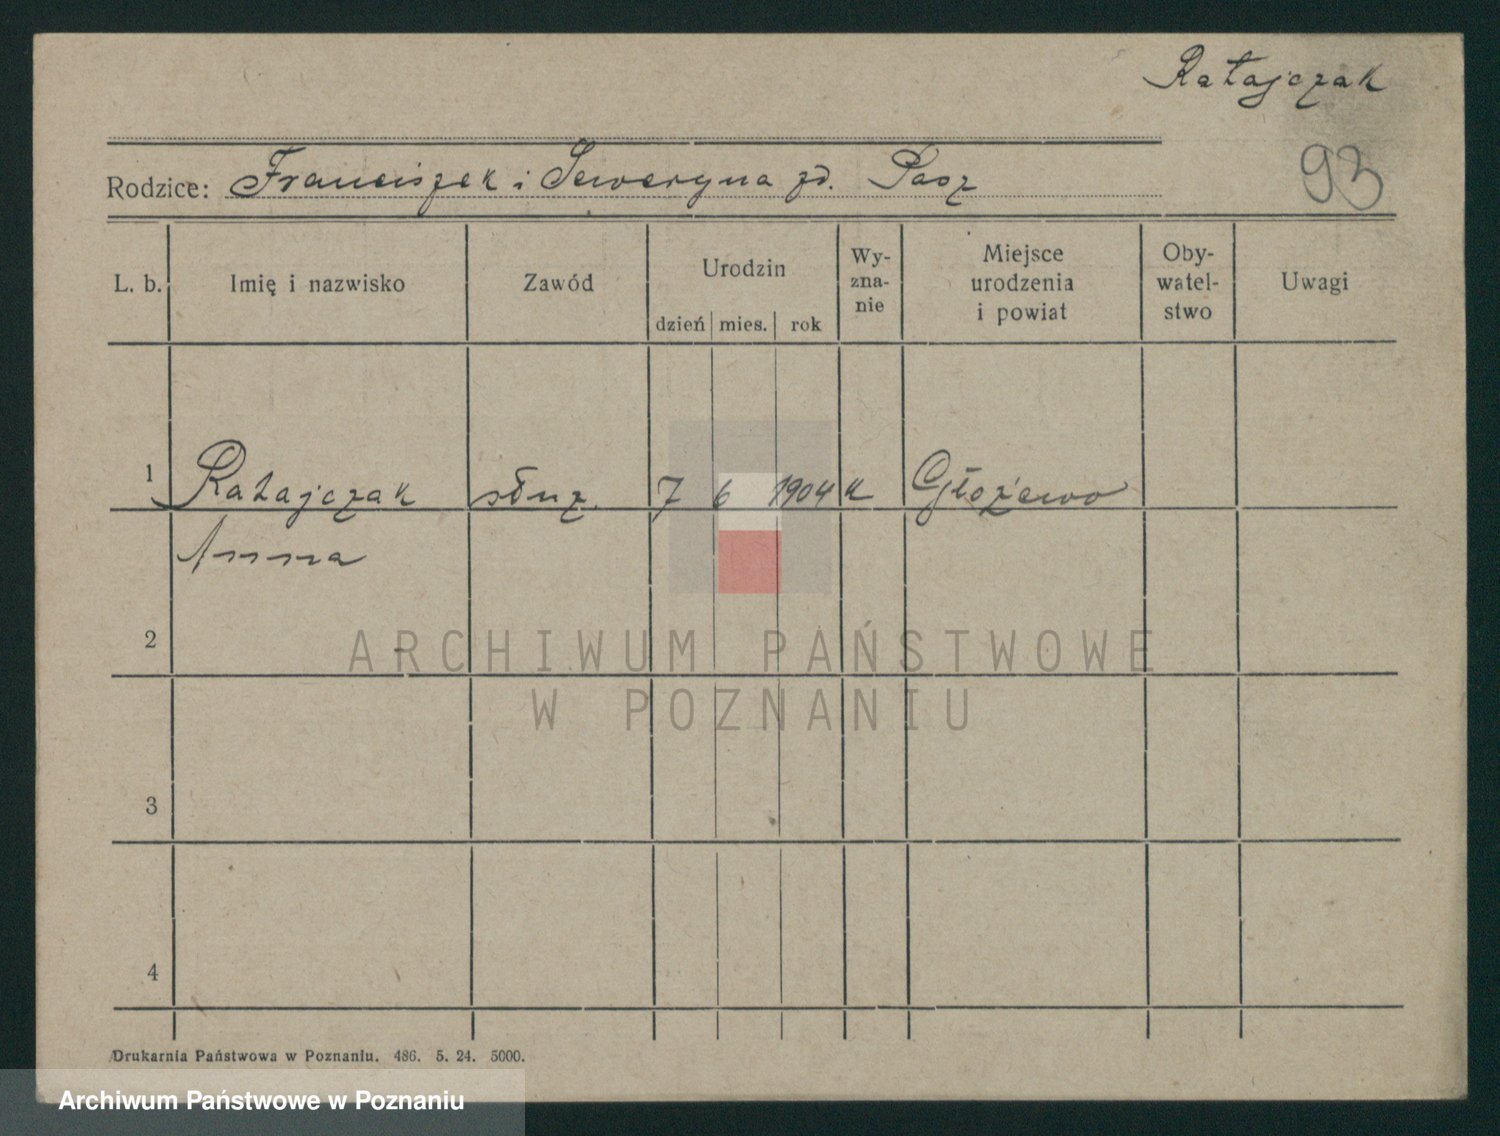 Ratajczak
93
Rodzice: Franciszek i Seweryna zd. Pasz
L. b.
Imię i nazwisko
Zawód
Urodzin
dzień mies. rok
Wy-
zna-
nie
Miejsce
urodzenia
i powiat
Oby-
watel-
stwo
Uwagi
1 Ratajczak służ. 7 6 1904 k Głożewo
Anna
2
3
4
ARCHIWUM PAŃSTWOWE
W POZNANIU
Drukarnia Państwowa w Poznaniu. 486. 5. 24. 5000.
Archiwum Państwowe w Poznaniu